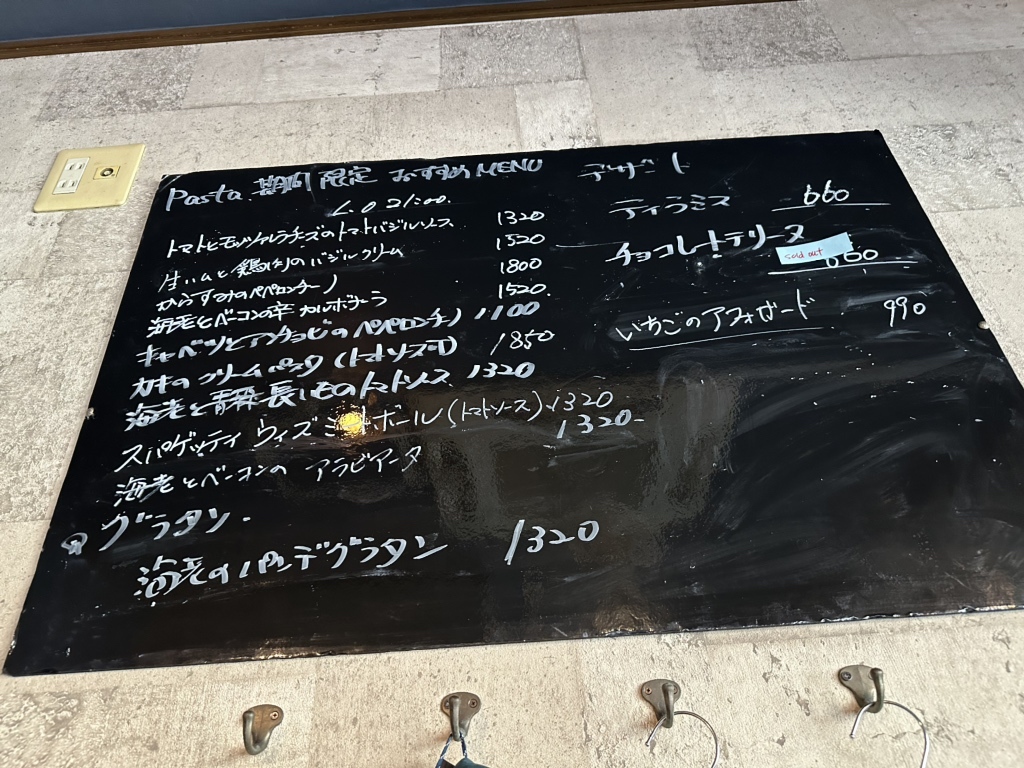 Pasta 期間限定 おすすめ MENU
L.O 21:00.
トマトとモッツァレラチーズのトマトバジルソース 1320
生ハムと鶏肉のバジルクリーム 1520
からすみのペペロンチーノ 1800
海老とベーコンの辛カルボナーラ 1520.
キャベツとアンチョビのペペロンチーノ 1100
カキのクリームパスタ (トマトソース可) 1850
海老と青菜と長いものトマトソース 1320
スパゲッティ ウィズ ミートボール (トマトソース) 1320
海老とベーコンの アラビアータ 1320-
グラタン.
海老のペンデグラタン 1320
デザート
ティラミス 660
チョコレートテリーヌ 660
sold out
いちごのアフォガード 990